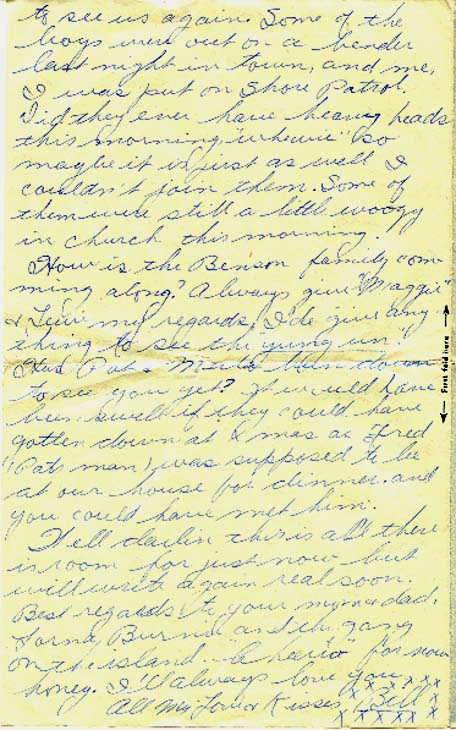 to see us again. Some of the
boys were out on a bender
last night in town, and me,
I was put on Shore Patrol.
Did they ever have heavy heads
this morning "whewie" so
maybe it is just as well I
couldn't join them. Some of
them were still a little woogy
in church this morning.
How is the Benson family com-
ming along? Always give "Maggie"
& my regards, I'de give any
thing to see the "yung un".
Has Pat & been down
to see you yet? It would have
been swell if they could have
gotten down at Xmas as "Fred"
(Pats man) was supposed to be
at our house for dinner. and
you could have met him.
Well darlin this is all there
is room for just now but
will write again real soon.
Best regards to your mom & dad.
Lorna, Burnie and the gang
on the island. "Cheerio" for now
honey. I'll always love you.
All My Love & Kisses, Bill
x x x x x x
x x x x x x
First fold here